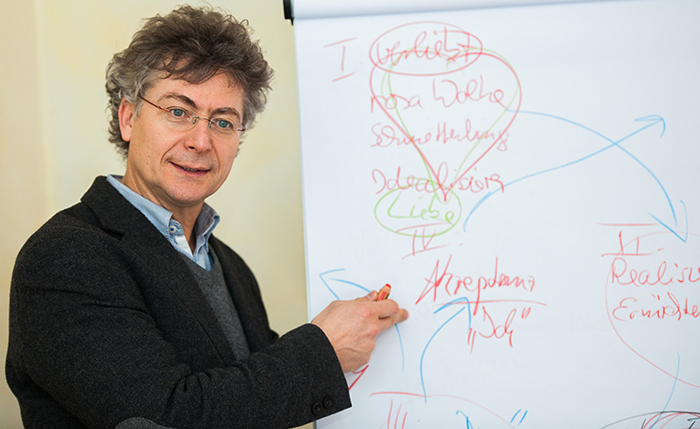 I verliebt
rosa Wolke
Schmetterling
Idealisierg
Liebe
IV
Akzeptanz
„Ich"
II
Realis
Ernüchter
III